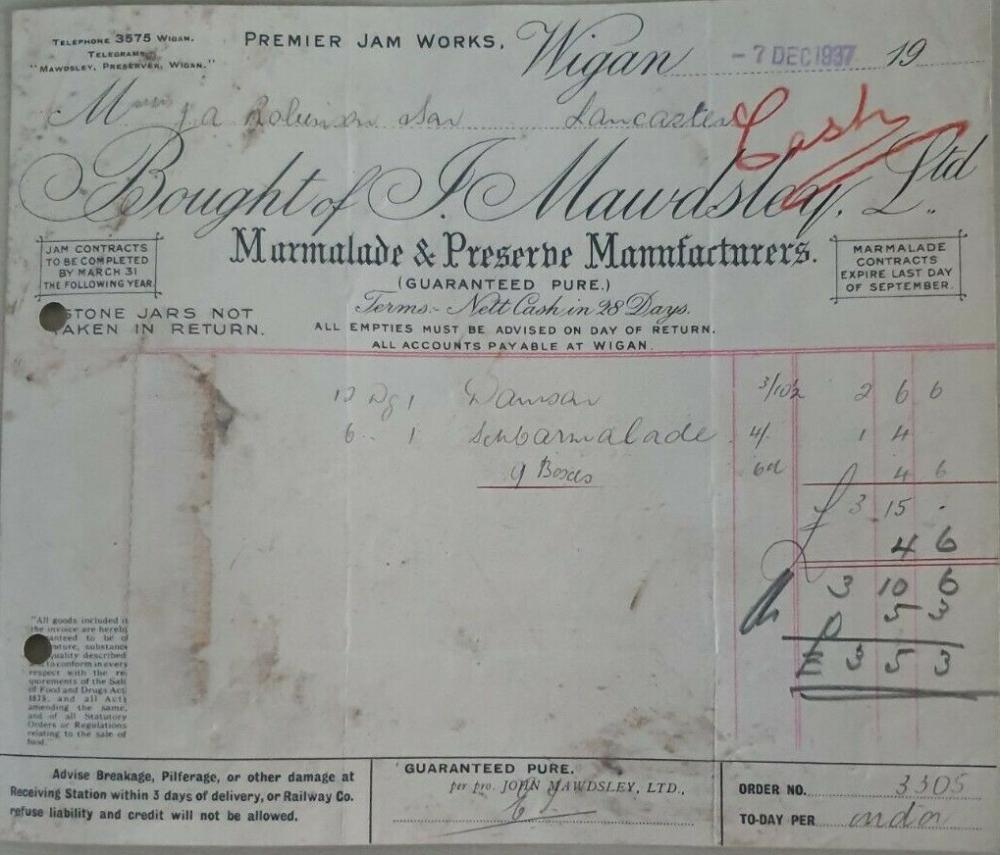 TELEPHONE 3575 WIGAN.
TELEGRAMS,
"MAWDSLEY, PRESERVER, WIGAN."
PREMIER JAM WORKS,
Wigan -7 DEC 1937 19
M J A Robinson Son Lancaster
Cash
Bought of J. Mawdsley, Ltd.
Marmalade & Preserve Manufacturers.
(GUARANTEED PURE.)
Terms:- Nett Cash in 28 Days.
ALL EMPTIES MUST BE ADVISED ON DAY OF RETURN.
ALL ACCOUNTS PAYABLE AT WIGAN.
JAM CONTRACTS
TO BE COMPLETED
BY MARCH 31
THE FOLLOWING YEAR
STONE JARS NOT
TAKEN IN RETURN.
MARMALADE
CONTRACTS
EXPIRE LAST DAY
OF SEPTEMBER.
12 1 Damson 3/10½ 2 6 6
6 .. 1 4/. 1 4
9 Boxes 6d 4 6
£ 3 15 .
4 6
3 10 6
5 3
£ 3 5 3
"All goods included in
the invoice are hereby
guaranteed to be of
nature, substance
quality described
and to conform in every
respect with the re-
quirements of the Sale
of Food and Drugs Act
1875, and all Acts
amending the same,
and of all Statutory
Orders or Regulations
relating to the sale of
food."
Advise Breakage, Pilferage, or other damage at
Receiving Station within 3 days of delivery, or Railway Co.
refuse liability and credit will not be allowed.
GUARANTEED PURE.
per pro. JOHN MAWDSLEY, LTD.,
ORDER NO. 3305
TO-DAY PER